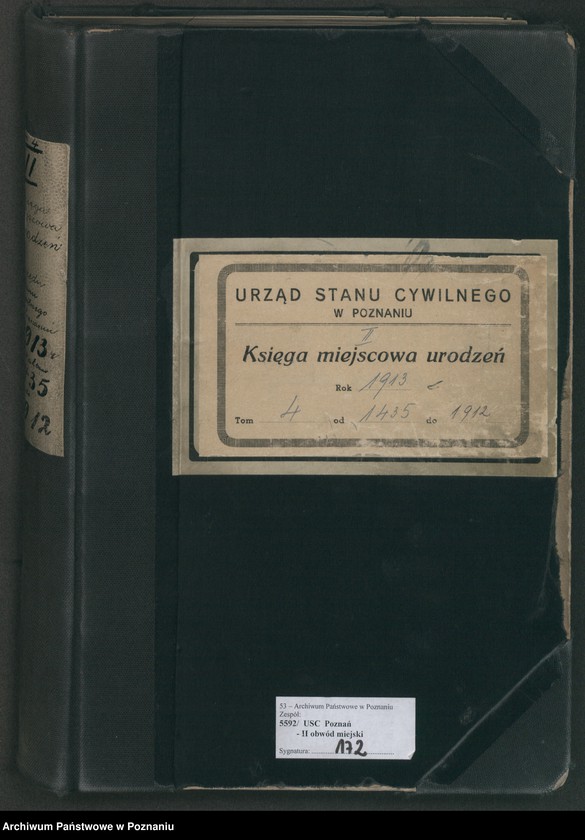 4
II
URZĄD STANU CYWILNEGO
W POZNANIU
II
Księga miejscowa urodzeń
Rok 1913 r.
Tom 4 od 1435 do 1912
53 – Archiwum Państwowe w Poznaniu
Zespół:
5592/ USC Poznań
- II obwód miejski
Sygnatura: 172
Archiwum Państwowe w Poznaniu